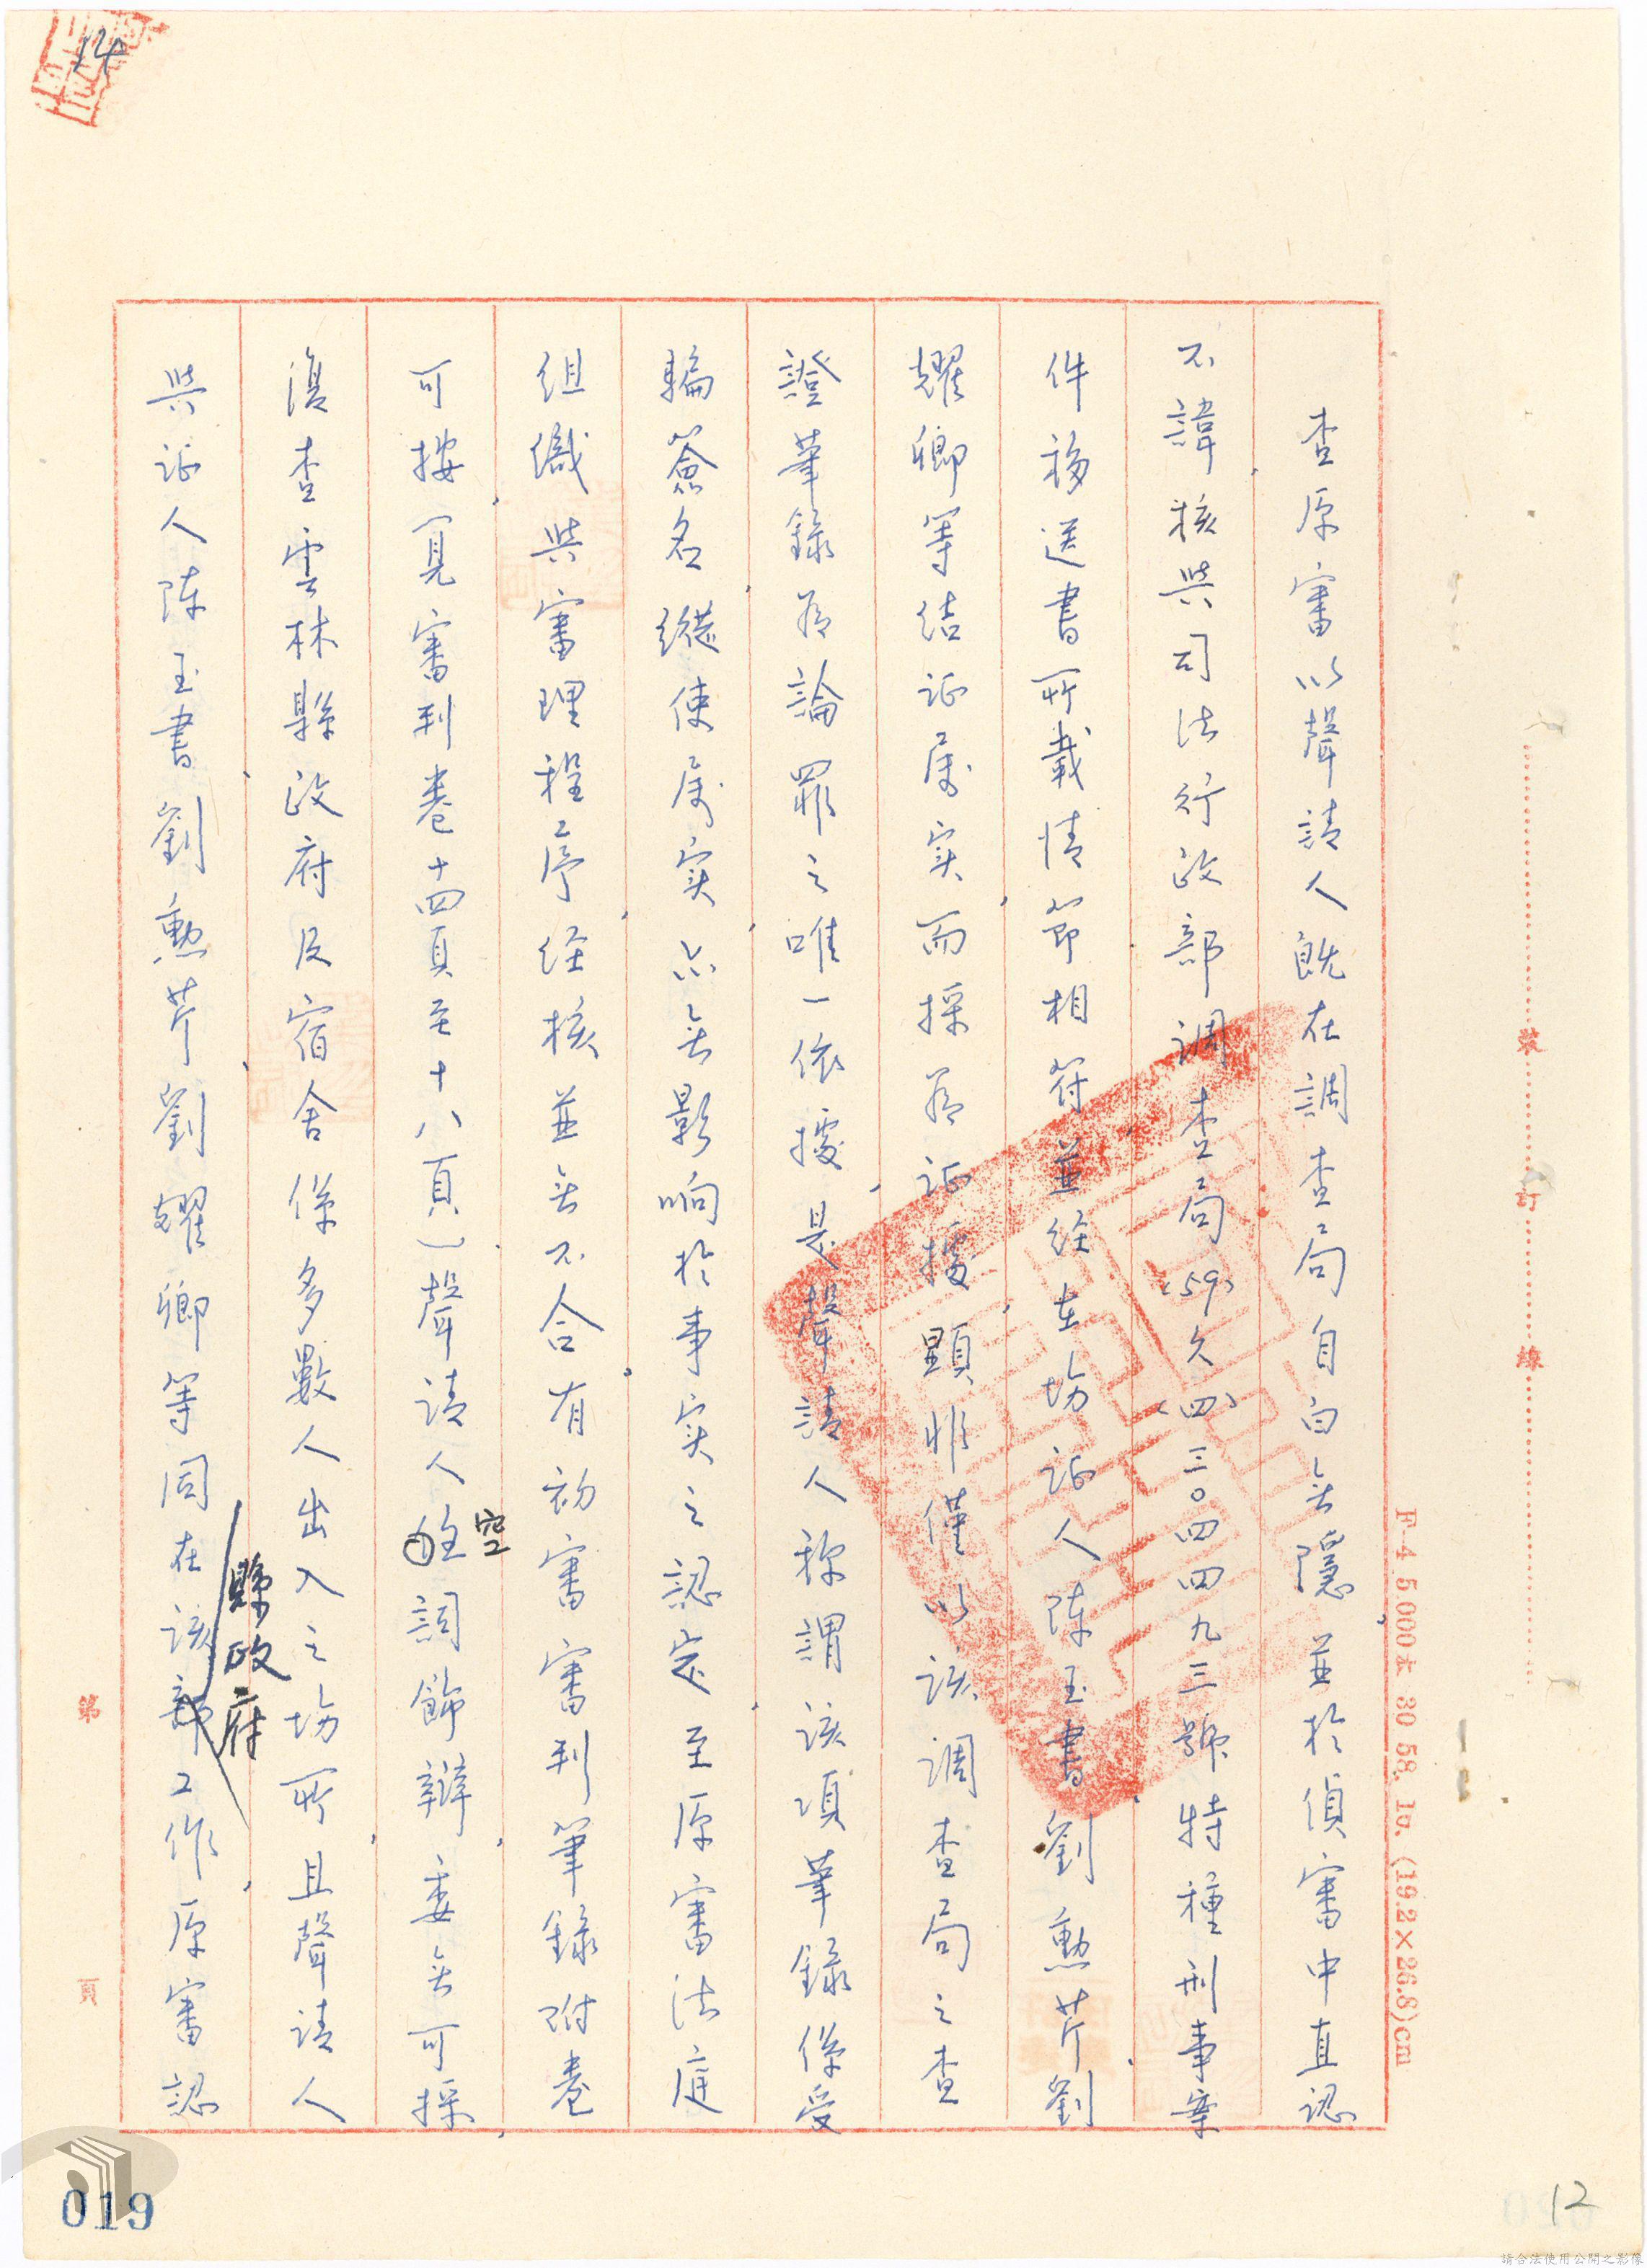 14
查原審以聲請人既在調查局自白無隱、並於偵審中直認
不諱、核與司法行政部調查局(59)久(四)三〇四四九三號特種刑事案
件移送書所載情節相符、並經在場证人陳玉書、劉勳芹、劉
耀卿等结证属实、而採為证據、顯非僅以該調查局之查
證筆錄為論罪之唯一依據、是聲請人称謂該項筆錄係受
騙簽名、縱使属实、亦無影响於事实之認定、至原審法庭
组織與審理程序、经核並無不合。有初審審判筆錄附卷、
可按(見審判卷十四頁至十八頁)聲请人空詞飾辯、委無可採
復查雲林縣政府及宿舍係多數人出入之場所、且聲请人
與证人陳玉書、劉勳芹、劉耀卿等同在該部工作、原審認
空
縣政府
裝
訂
線
F—4 5.000本 30 58. 10. (19.2×26.8)cm
第
頁
019
12
請合法使用公開之影像